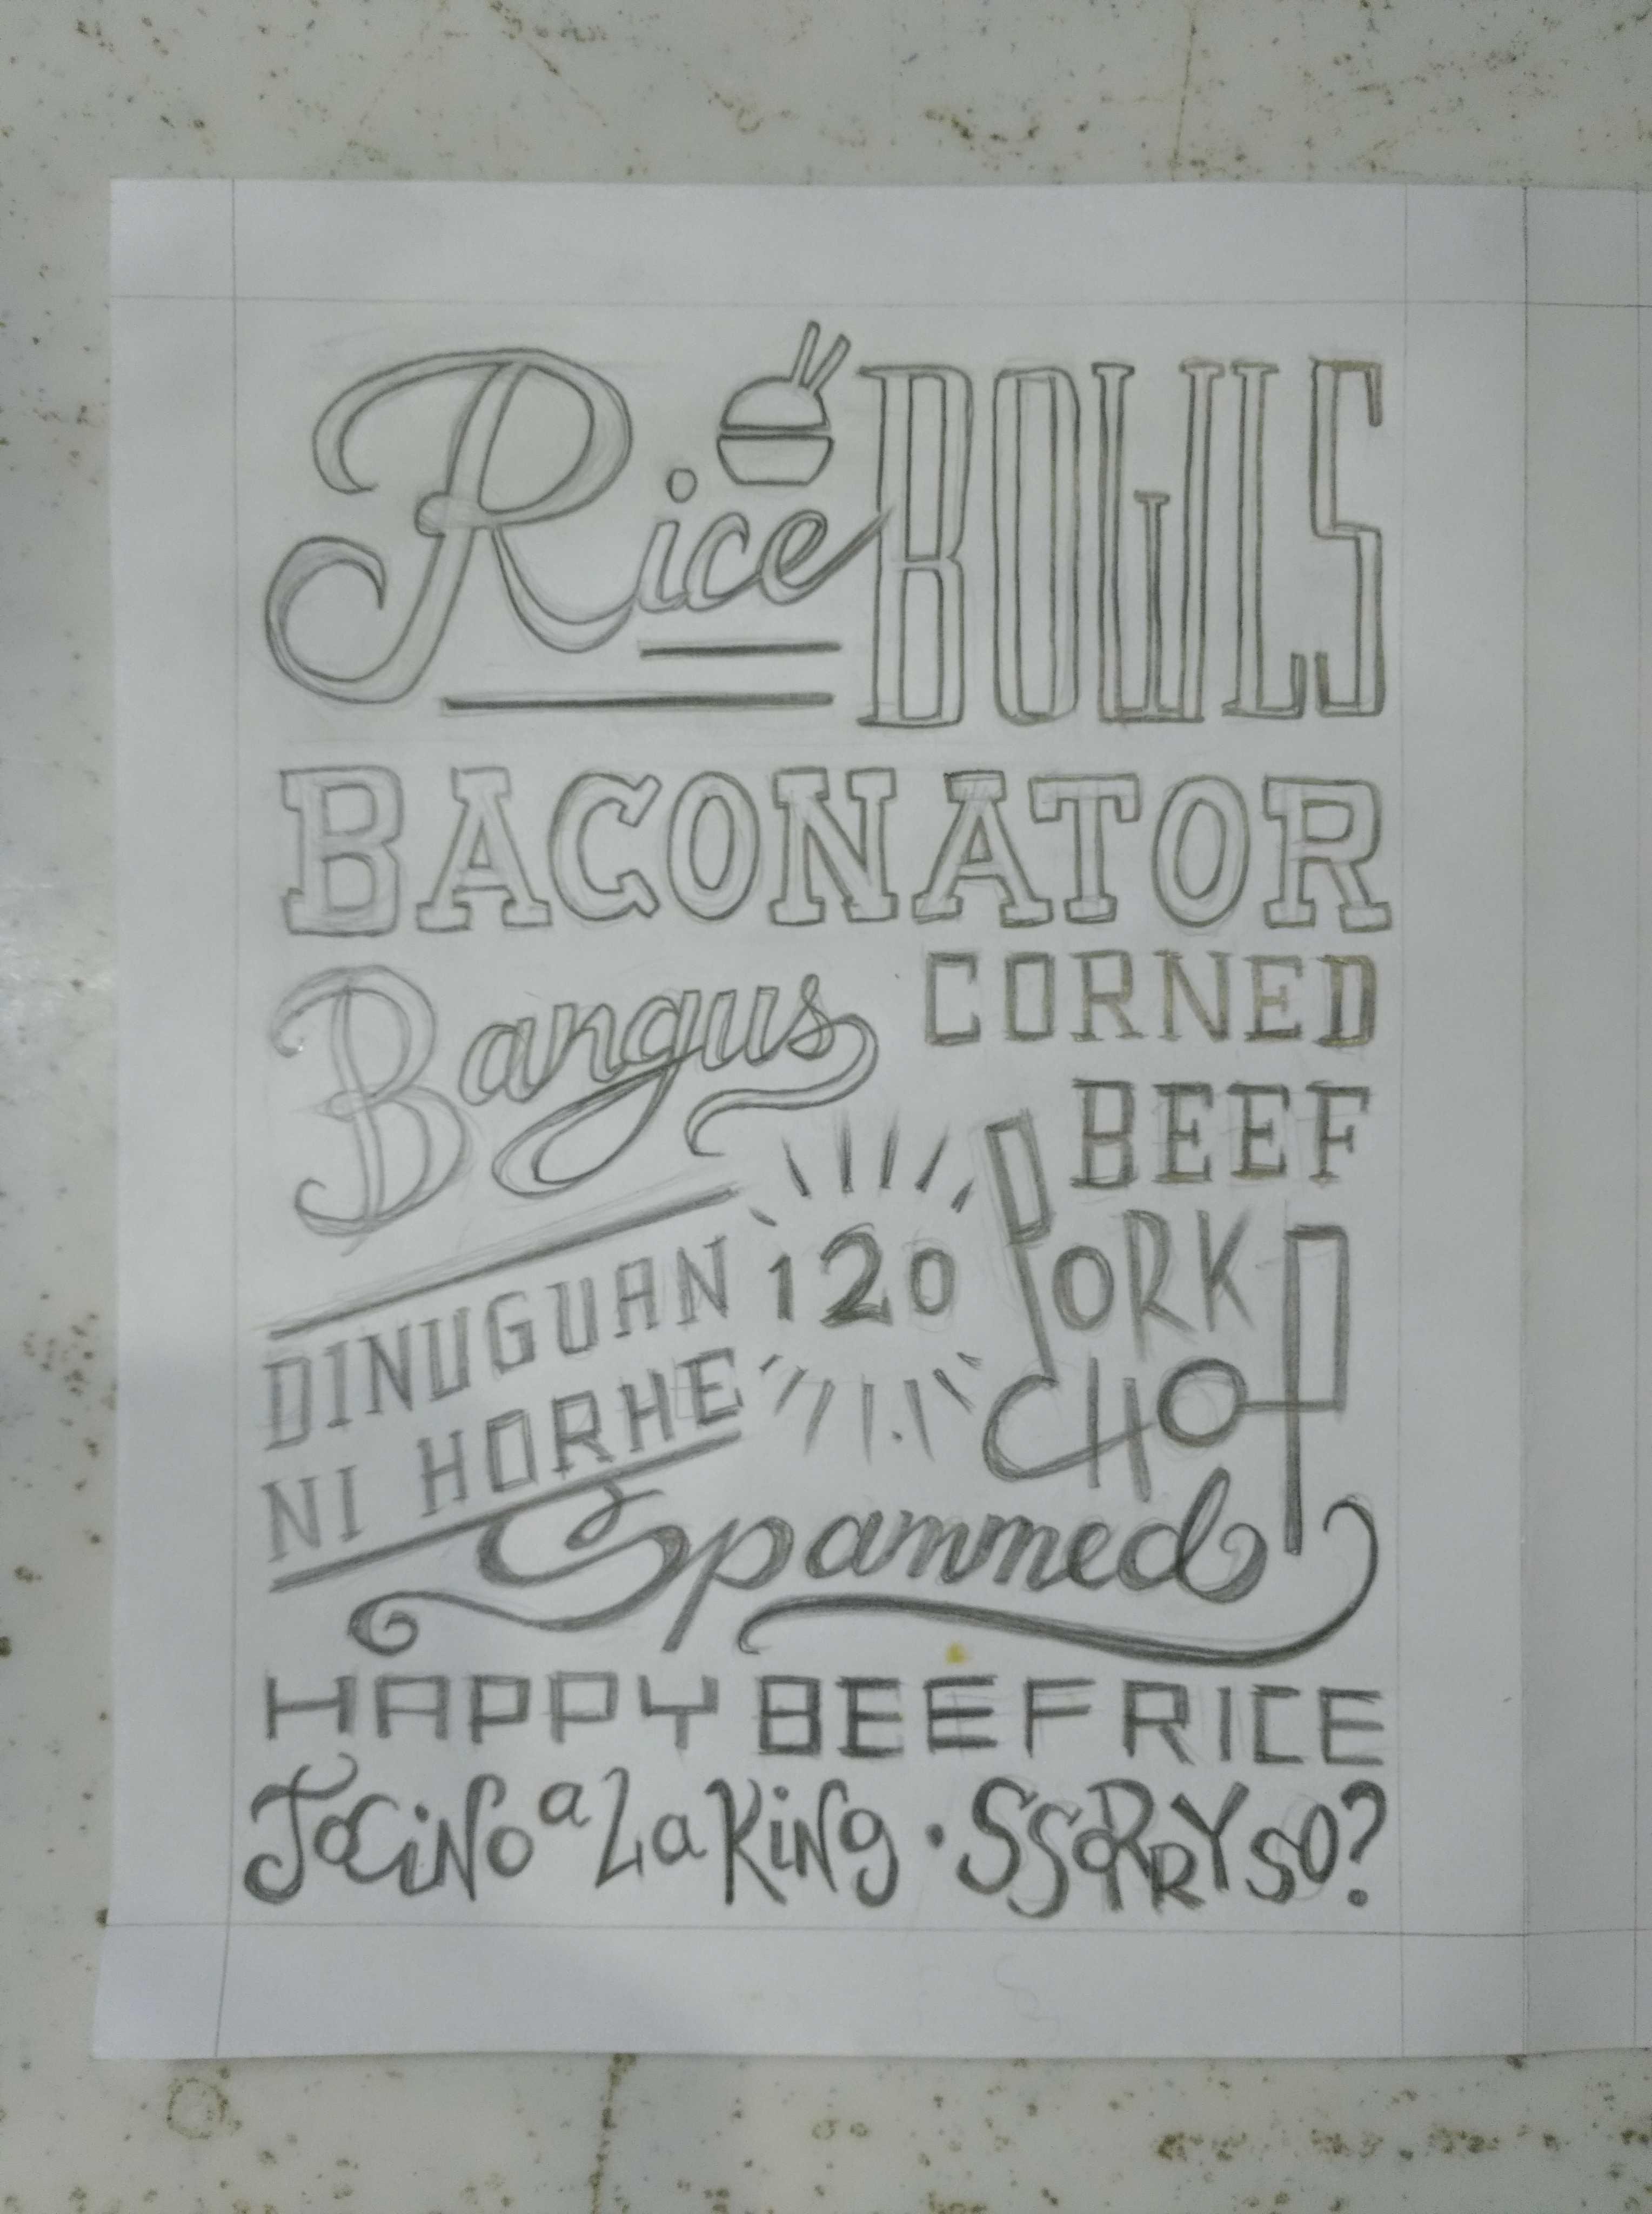 Rice BOWLS
BACONATOR
Bangus
CORNED
BEEF
DINUGUAN
NI HORHE
120
PORK
CHOP
Spammed
HAPPY BEEF RICE
TOCiNo a La KiNg · SSORRY SO?